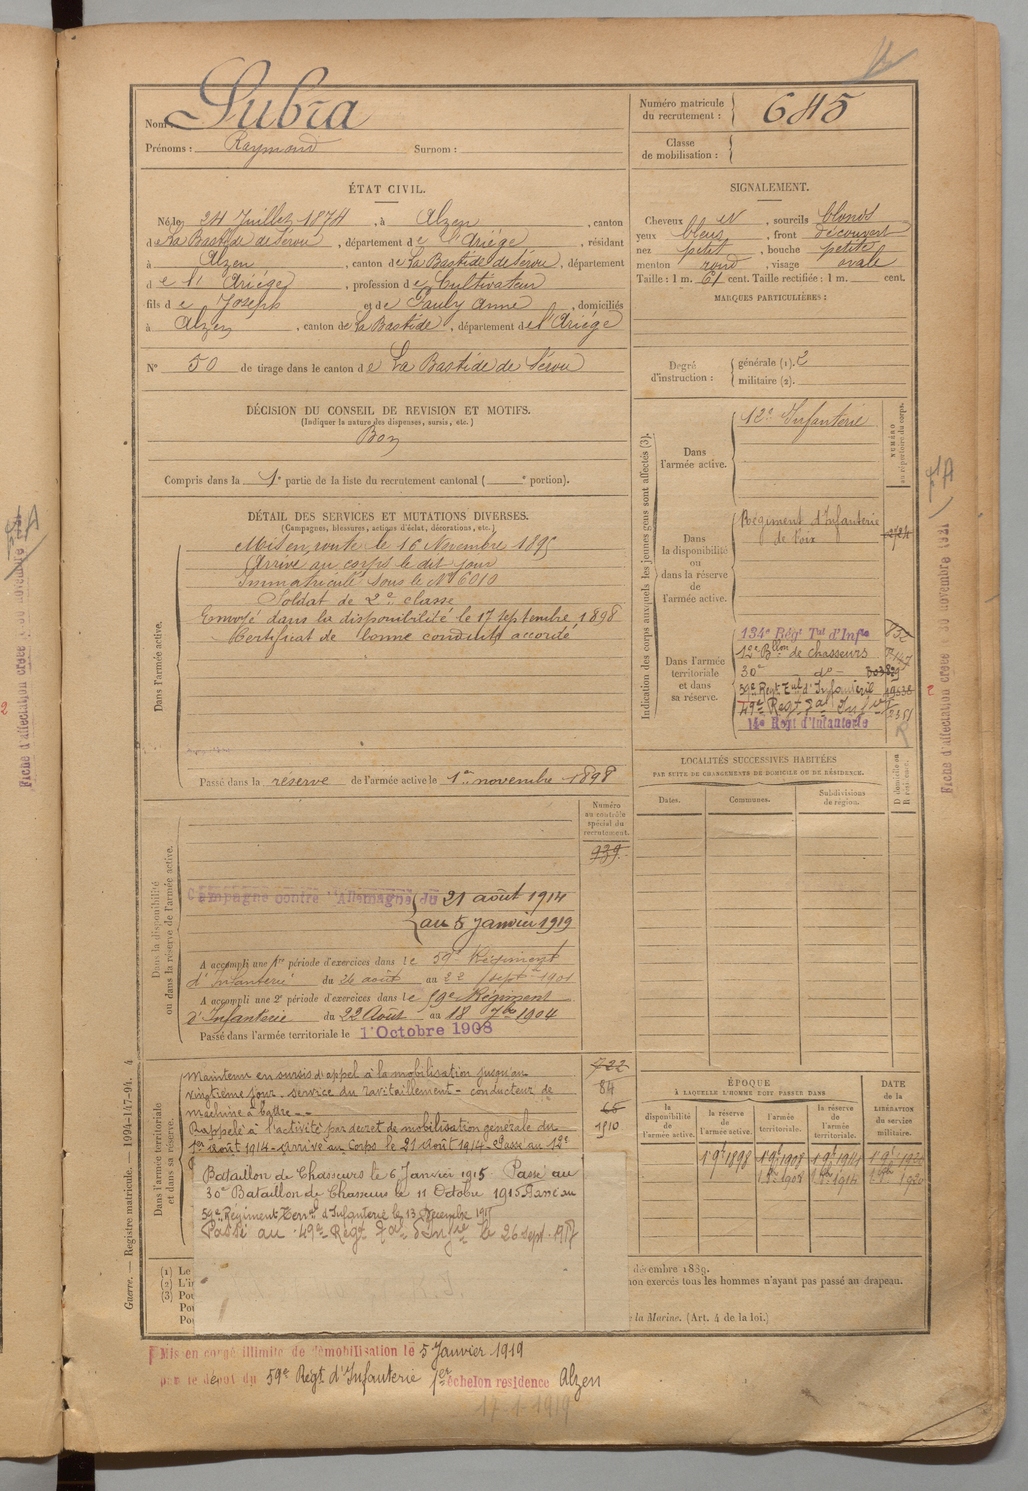 Nom : Subra
Prénoms : Raymond Surnom :
Numéro matricule du recrutement : 645
Classe de mobilisation :
ÉTAT CIVIL.
Né le 24 Juillet 1874, à Alzen, canton
de La Bastide de Sérou, département de l'Ariége, résidant
à Alzen, canton de La Bastide de Sérou, département
de l'Ariége, profession de Cultivateur
fils de Joseph et de Pauly Anne, domiciliés
à Alzen, canton de La Bastide, département de l'Ariége
N° 50 de tirage dans le canton de La Bastide de Sérou
SIGNALEMENT.
Cheveux et, sourcils blonds
yeux bleus, front découvert
nez petit, bouche petite
menton rond, visage ovale
Taille : 1 m. 61 cent. Taille rectifiée : 1 m. cent.
MARQUES PARTICULIÈRES :
Degré d'instruction : générale (1). 2
militaire (2).
DÉCISION DU CONSEIL DE REVISION ET MOTIFS.
(Indiquer la nature des dispenses, sursis, etc.)
Bon
Compris dans la 1e partie de la liste du recrutement cantonal ( e portion).
DÉTAIL DES SERVICES ET MUTATIONS DIVERSES.
(Campagnes, blessures, actions d'éclat, décorations, etc.)
Dans l'armée active.
Mis en route le 16 Novembre 1895
Arrivé au corps le dit jour
Immatriculé sous le N° 6010
Soldat de 2e classe
Envoyé dans la disponibilité le 17 septembre 1898
Certificat de bonne conduite accordé
Passé dans la réserve de l'armée active le 1er novembre 1898
Indication des corps auxquels les jeunes gens sont affectés (3).
NUMÉRO au répertoire du corps.
Dans l'armée active.
12e Infanterie
Dans la disponibilité ou dans la réserve de l'armée active.
Régiment d'Infanterie
de Foix
Dans l'armée territoriale et dans sa réserve.
134e Régt Tal d'Infie
12e Bllon de chasseurs
30e - do -
59e Regt Tal d'Infanterie
49e Regt Tal Inf
14e Regt d'Infanterie
LOCALITÉS SUCCESSIVES HABITÉES
PAR SUITE DE CHANGEMENTS DE DOMICILE OU DE RÉSIDENCE.
Dates. Communes. Subdivisions de région. D domicile ou R résidence.
Numéro au contrôle spécial du recrutement.
939
Dans la disponibilité ou dans la réserve de l'armée active.
Campagne contre l'Allemagne du 21 août 1914
au 5 Janvier 1919
A accompli une 1re période d'exercices dans le 59e Régiment
d'Infanterie du 26 août au 22 septre 1901
A accompli une 2e période d'exercices dans le 59e Régiment
d'Infanterie du 22 Août au 18 7bre 1904
Passé dans l'armée territoriale le 1er Octobre 1908
722
84
66
1910
Dans l'armée territoriale et dans sa réserve.
Maintenu en sursis d'appel à la mobilisation jusqu'au
vingtième jour - service du ravitaillement - conducteur de
machine à battre - -
Rappelé à l'activité par decret de mobilisation générale du
1er août 1914 - Arrivé au Corps le 21 Août 1914 - Passé au 12e
Bataillon de Chasseurs le 6 Janvier 1915 Passé au
30e Bataillon de Chasseurs le 11 Octobre 1915 Passé au
59e Régiment Terral d'Infanterie le 13 Décembre 1915
Passé au 49e Régt Tal d'Infie le 26 sept. 1917
ÉPOQUE
À LAQUELLE L'HOMME DOIT PASSER DANS
la disponibilité de l'armée active.
la réserve de l'armée active.
l'armée territoriale.
la réserve de l'armée territoriale.
DATE de la LIBÉRATION du service militaire.
1er 9bre 1898 1er 9bre 1908 1er 9bre 1914
(1) Le
(2) L'i
(3) Pou
Pou
Pou
décembre 1889.
non exercés tous les hommes n'ayant pas passé au drapeau.
de la Marine. (Art. 4 de la loi.)
Mis en congé illimité de démobilisation le 5 Janvier 1919
par le dépôt du 59e Régt d'Infanterie 1er échelon residence Alzen
17-1-1919
Guerre. — Registre matricule. — 1994-147-94. 4
Fiche d'affectation créée 30 novembre 1921